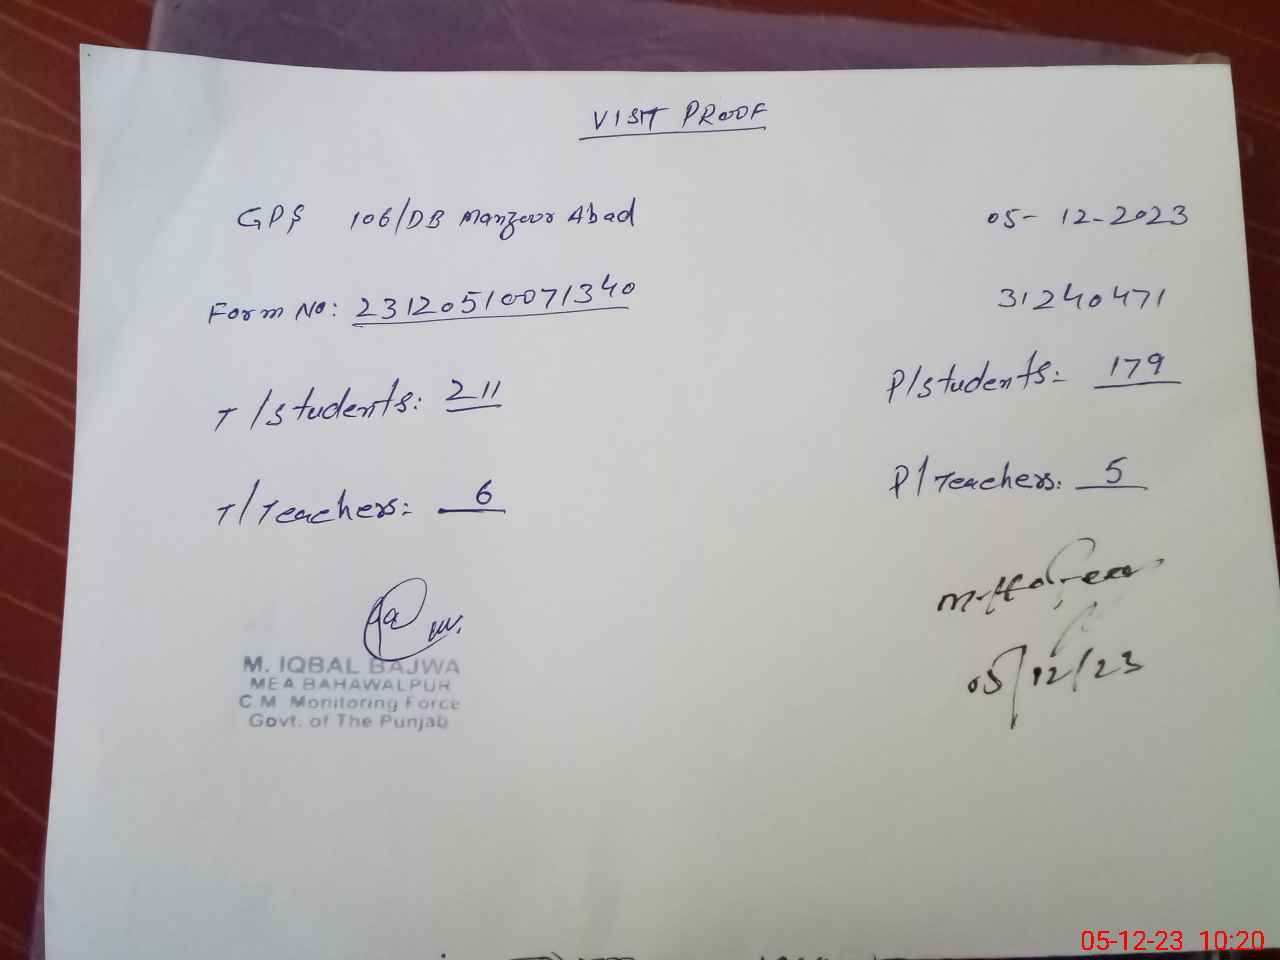 VISIT PROOF
GPS 106/DB Manzoor Abad
05-12-2023
Form No: 23120510071340
31240471
T/Students: 211
P/Students:- 179
T/Teachers:- 6
P/Teachers: 5
M. IQBAL BAJWA
MEA BAHAWALPUR
C.M Monitoring Force
Govt. of The Punjab
05/12/23
05-12-23 10:20